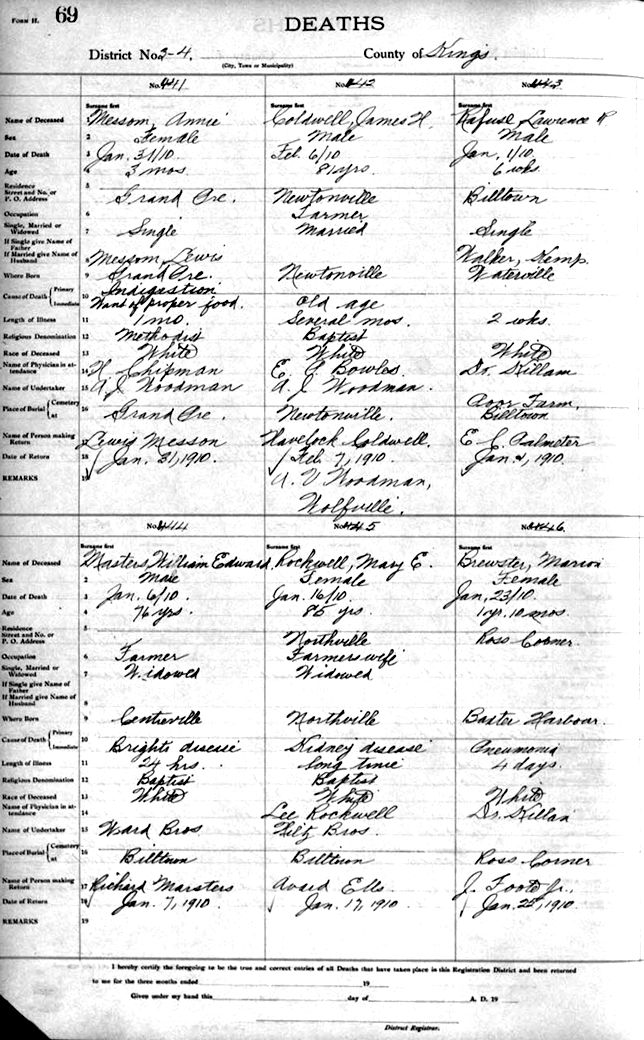 FORM H. 69
DEATHS
District No. 3-4. County of Kings.
(City, Town or Municipality)
No. 441 No. 442 No. 443
Surname first Surname first Surname first
Name of Deceased Messom, Annie Coldwell, James H. Rafuse, Lawrence R
Sex 2 Female Male Male
Date of Death 3 Jan. 31/10. Feb. 6/10 Jan. 1/10
Age 4 3 mos. 81 yrs. 6 wks.
Residence 5
Street and No. or
P. O. Address Grand Pre. Newtonville Billtown
Occupation 6 Farmer
Single, Married or
Widowed 7 Single Married Single
If Single give Name of
Father
If Married give Name of
Husband 8 Messom, Lewis Walker, Kemp.
Where Born 9 Grand Pre. Newtonville Waterville
Cause of Death { Primary 10 Indigestion
Immediate Want of proper food. Old age
Length of Illness 11 1 mo. Several mos. 2 wks.
Religious Denomination 12 Methodist Baptist
Race of Deceased 13 White White White
Name of Physician in at-
tendance 14 H. Chipman E. Bowles. Dr. Killam
Name of Undertaker 15 A. J. Woodman A. J. Woodman.
Place of Burial { Cemetery 16 Poor Farm,
at Grand Pre. Newtonville. Billtown
Name of Person making
Return Lewis Messon Havelock Coldwell. E C Palmeter
Date of Return 18 Jan. 31, 1910. Feb. 7, 1910. Jan. 1910.
REMARKS 19 A. V Woodman,
Wolfville.
No. 444 No. 445 No. 446
Surname first Surname first Surname first
Name of Deceased Masters, William Edward, Rockwell, Mary E. Brewster, Marion
Sex 2 Male Female Female
Date of Death 3 Jan. 6/10 Jan. 16/10 Jan. 23/10
Age 4 76 yrs. 85 yrs. 1 yr. 10 mos.
Residence 5
Street and No. or
P. O. Address Northville Ross Corner.
Occupation 6 Farmer Farmers wife
Single, Married or
Widowed 7 Widowed Widowed
If Single give Name of
Father
If Married give Name of
Husband 8
Where Born 9 Centreville Northville Baxter Harbour.
Cause of Death { Primary 10
Immediate Brights disease Kidney disease Pneumonia
Length of Illness 11 24 hrs. long time 4 days.
Religious Denomination 12 Baptist Baptist
Race of Deceased 13 White White White
Name of Physician in at-
tendance 14 Lee Rockwell Dr. Killam
Name of Undertaker 15 Ward Bros. Hiltz Bros.
Place of Burial { Cemetery 16
at Billtown Billtown Ross Corner
Name of Person making
Return 17 Richard Marsters Avard Ells. J. Foote Jr.,
Date of Return 18 Jan. 7, 1910. Jan. 17, 1910. Jan. 1910.
REMARKS 19
I hereby certify the foregoing to be the true and correct entries of all Deaths that have taken place in this Registration District and been returned
to me for the three months ended 19
Given under my hand this day of A. D. 19
District Registrar.